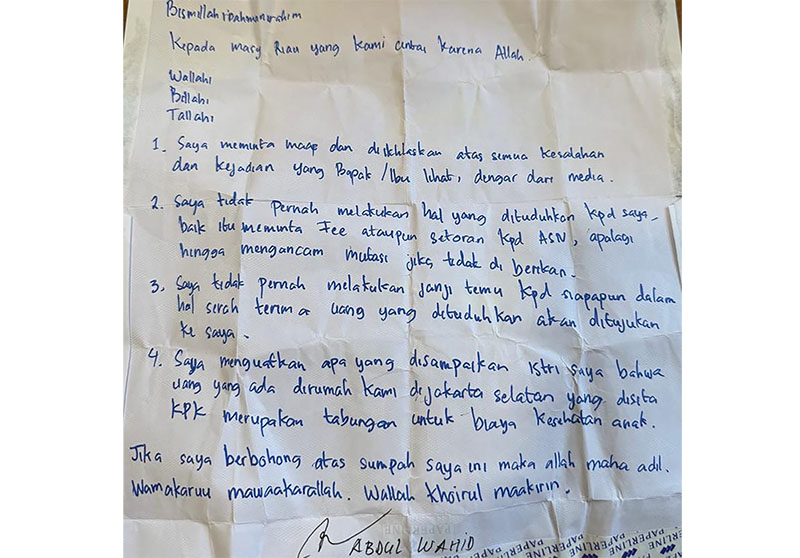 Bismillahirahmanirahim
Kepada masy Riau yang kami cintai karena Allah.
Wallahi
Billahi
Tallahi
1. Saya meminta maap dan diikhlaskan atas semua kesalahan
dan kejadian yang Bapak/Ibu lihat, dengar dari media.
2. Saya tidak pernah melakukan hal yang dituduhkan kpd saya
baik itu meminta Fee ataupun setoran kpd ASN, apalagi
hingga mengancam mutasi jika tidak di berikan.
3. Saya tidak pernah melakukan janji temu kpd siapapun dalam
hal serah terima uang yang dituduhkan akan ditujukan
ke saya.
4. Saya menguatkan apa yang disampaikan istri saya bahwa
uang yang ada dirumah kami dijakarta selatan yang disita
KPK merupakan tabungan untuk biaya kesehatan anak.
Jika saya berbohong atas sumpah saya ini maka allah maha adil.
Wamakaruu mawaakarallah. Wallah khoirul maakirin.
ABDUL WAHID
PAPERLINE
PAPERLINE
PAPERLINE